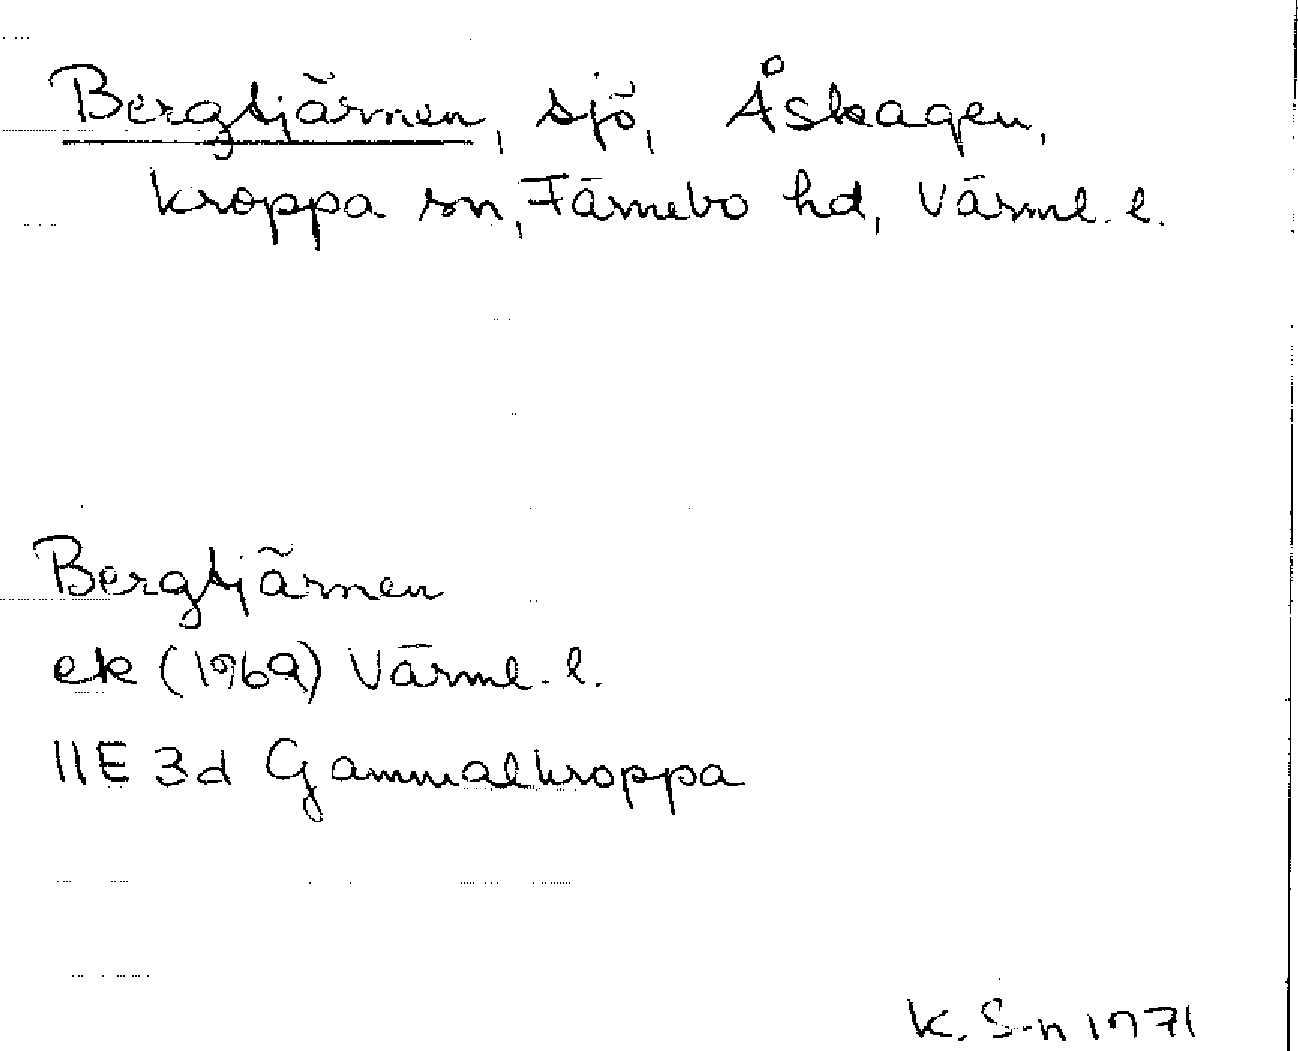 Bergtjärnen, sjö, Åskagen,
Kroppa sn, Färnebo hd, Värml. l.
Bergtjärnen
ek (1969) Värml. l.
11E 3d Gammalkroppa
K. S-n 1971